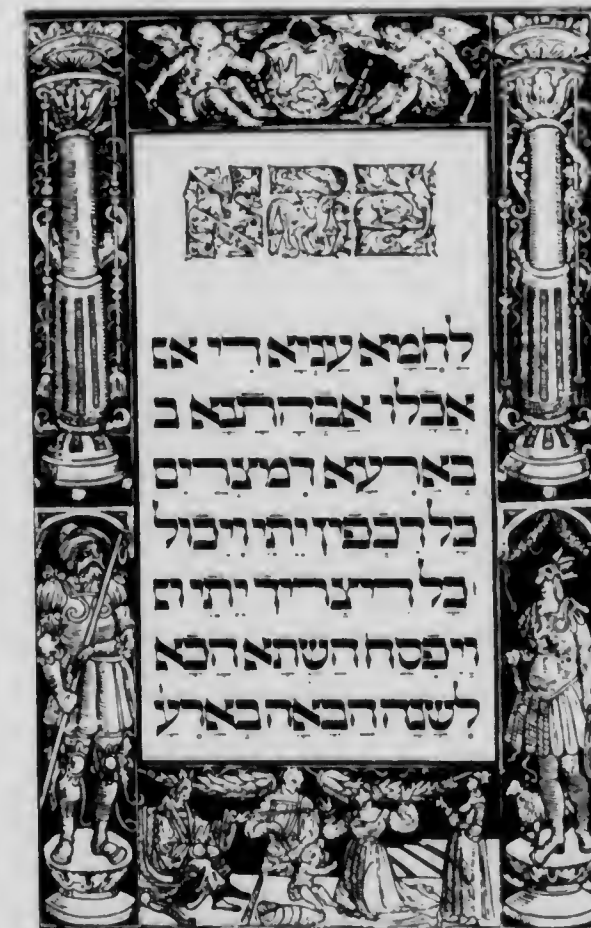 כהא
לחמא עניא די אכ
אכלו אבהתנא ב
בארעא דמצרים
כל דכפין ייתי וייכול
כל דיצריך ייתי
ויפסח השתא הכא
לשנה הבאה בארע